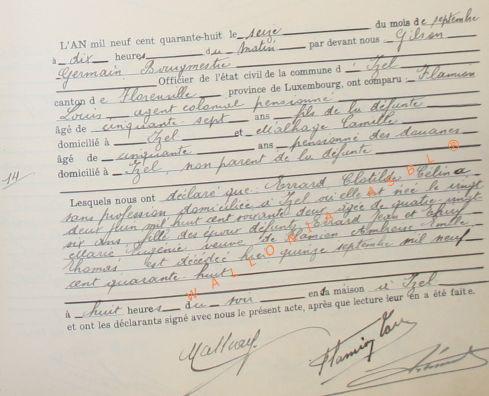 L'AN mil neuf cent quarante-huit le seize du mois de septembre
à dix heures du matin par devant nous Gilson
Germain Bourgmestre Officier de l'état civil de la commune d' Izel
canton de Florenville province de Luxembourg, ont comparu : Flamion
Louis, agent colonial pensionné
âgé de cinquante sept ans, fils de la défunte
domicilié à Izel et Malhage Camille
âgé de cinquante ans pensionné des douanes
domicilié à Izel, non parent de la défunte
14
Lesquels nous ont déclaré que Errard Clotilde Célina
sans profession domiciliée à Izel où elle est née le vingt
deux juin mil huit cent soixante deux, âgée de quatre vingt
six ans, fille des époux défunts Errard Jean et
Marie Eugénie veuve de Flamion Ambroise Emile
Thomas, est décédée hier quinze septembre mil neuf
cent quarante huit
à huit heures du soir en sa maison à Izel
et ont les déclarants signé avec nous le présent acte, après que lecture leur en a été faite.
WALLONIA ASBL ®
Flamion Louis